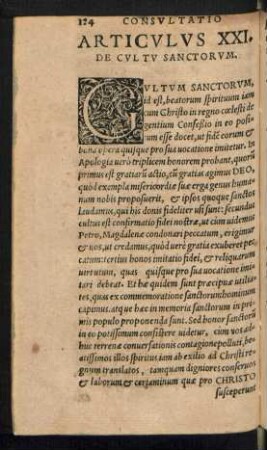 174 CONSVLTATIO
ARTICVLVS XXI.
DE CVLTV SANCTORVM.
CVLTVM SANCTORVM,
id est, beatorum spirituum iam
cum Christo in regno cœlesti de
gentium Confessio in eo posi=
tum esse docet, ut fidē eorum &
bona opera quisque pro sua uocatione imitetur. In
Apologia uerò triplicem honorem probant, quorū
primus est gratiarū actio, cū gratias agimus DEO,
quòd exempla misericordiæ suæ erga genus huma=
num nobis proposuerit, & ipsos quoque sanctos
laudamus, qui his donis fideliter usi sunt: secundus
cultus est confirmatio fidei nostræ, ut cum uidemus
Petro, Magdalenæ condonari peccatum, erigimur
& nos, ut credamus, quòd uerè gratia exuberet pec
catum: tertius honos imitatio fidei, & reliquarum
uirtutum, quas quisque pro sua uocatione imita=
tari debeat. Et hæ quidem sunt præcipuæ utilita=
tes, quas ex commemoratione sanctorum hominum
capimus. atque hæc in memoria sanctorum in pri=
mis populo proponenda sunt. Sed honor sanctorū
in eo potissimum consistere uidetur, cum uos ad=
huc terrenæ conuersationis contagione polluti, be=
atissimos illos spiritus iam ab exilio ad Christi re=
gnum translatos, tamquam digniores conseruos
& laborum & certaminum quæ pro CHRISTO
susceperunt